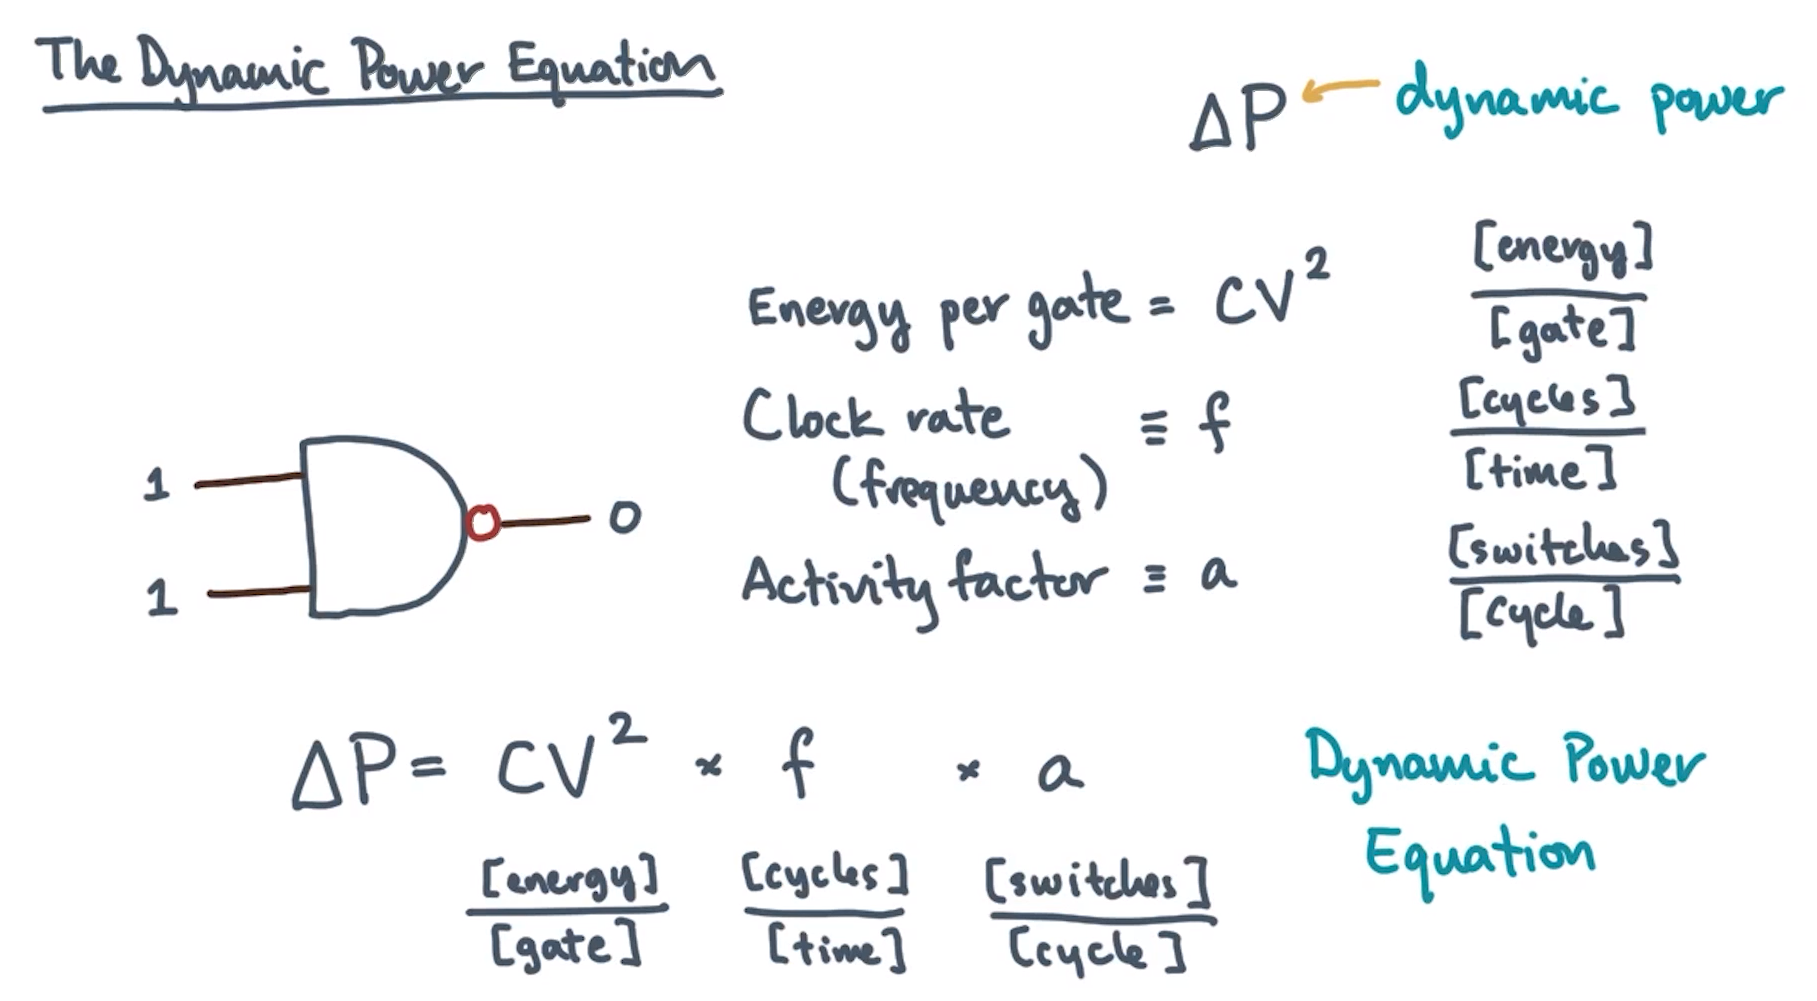 The Dynamic Power Equation
ΔP
dynamic power
Energy per gate = CV²
[energy]
[gate]
Clock rate ≡ f
(frequency)
[cycles]
[time]
Activity factor ≡ a
[switches]
[cycle]
1
1
0
ΔP = CV² × f × a
[energy]
[gate]
[cycles]
[time]
[switches]
[cycle]
Dynamic Power
Equation